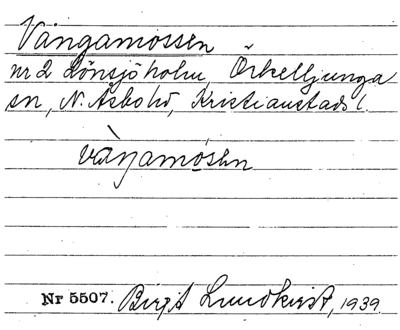 Vångamossen
nr 2 Lönsjöholm, Örkelljunga
sn, N. Åsbo hd, Kristianstads l.
vàŋamósən
Nr 5507. Birgit Lundkvist, 1939.